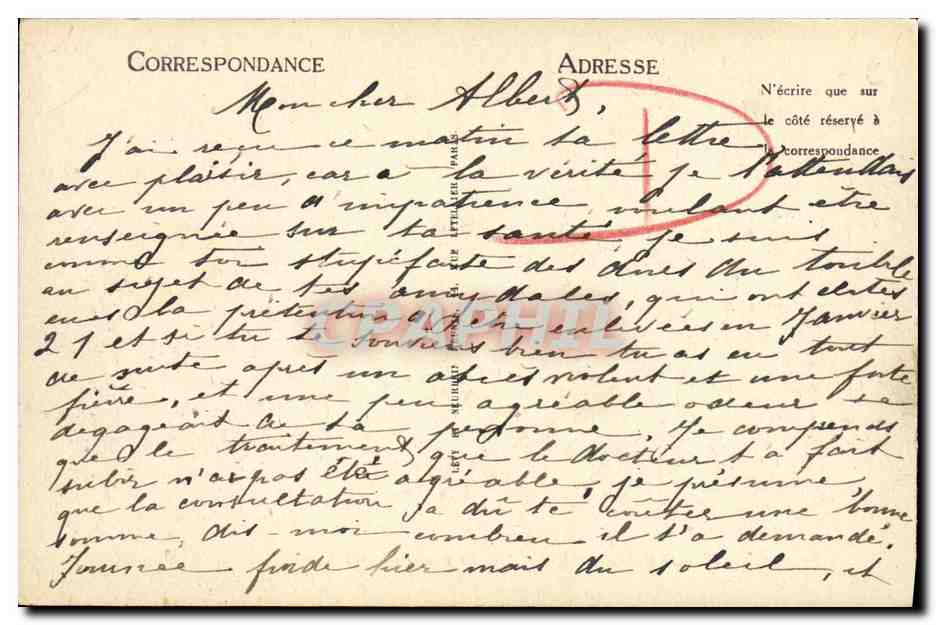 CORRESPONDANCE
ADRESSE
N'écrire que sur
le côté réservé à
la correspondance
Mon cher Albert,
J'ai reçu ce matin ta lettre
avec plaisir, car à la vérité je l'attendais
avec un peu d'impatience voulant être
renseignée sur ta santé, je suis
comme toi stupéfaite des dires du
au sujet de tes amydales, qui ont
la prétention d'être enlevées en Janvier
21 et si tu te souviens bien tu as eu tout
de suite après un abcès violent et une forte
fièvre, et une peu agréable odeur se
dégageait de ta personne. Je comprends
que le traitement que le docteur t'a fait
subir n'a pas été agréable, je présume
que la consultation a dû te coûter une bonne
somme, dis-moi combien il t'a demandé.
Journée froide hier mais du soleil, et
LEVY ET NEURDEIN RÉUNIS, 44, RUE LETELLIER PARIS
CPAPHIL